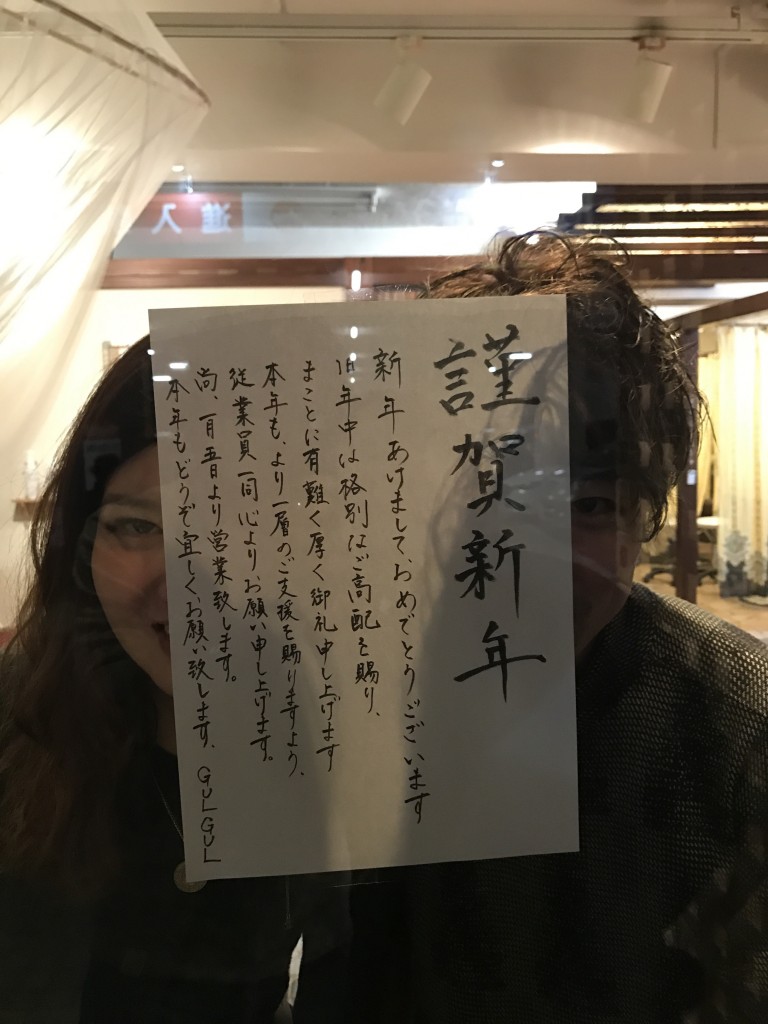 謹賀新年
新年あけまして、おめでとうございます
旧年中は格別なご高配を賜り、
まことに有難く厚く御礼申し上げます
本年も、より一層のご支援を賜りますよう、
従業員一同心よりお願い申し上げます。
尚、一月五日より営業致します。
本年もどうぞ宜しくお願い致します。 GULGUL